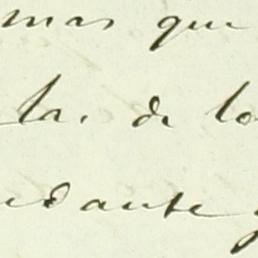 mas que
la. de lo
udante